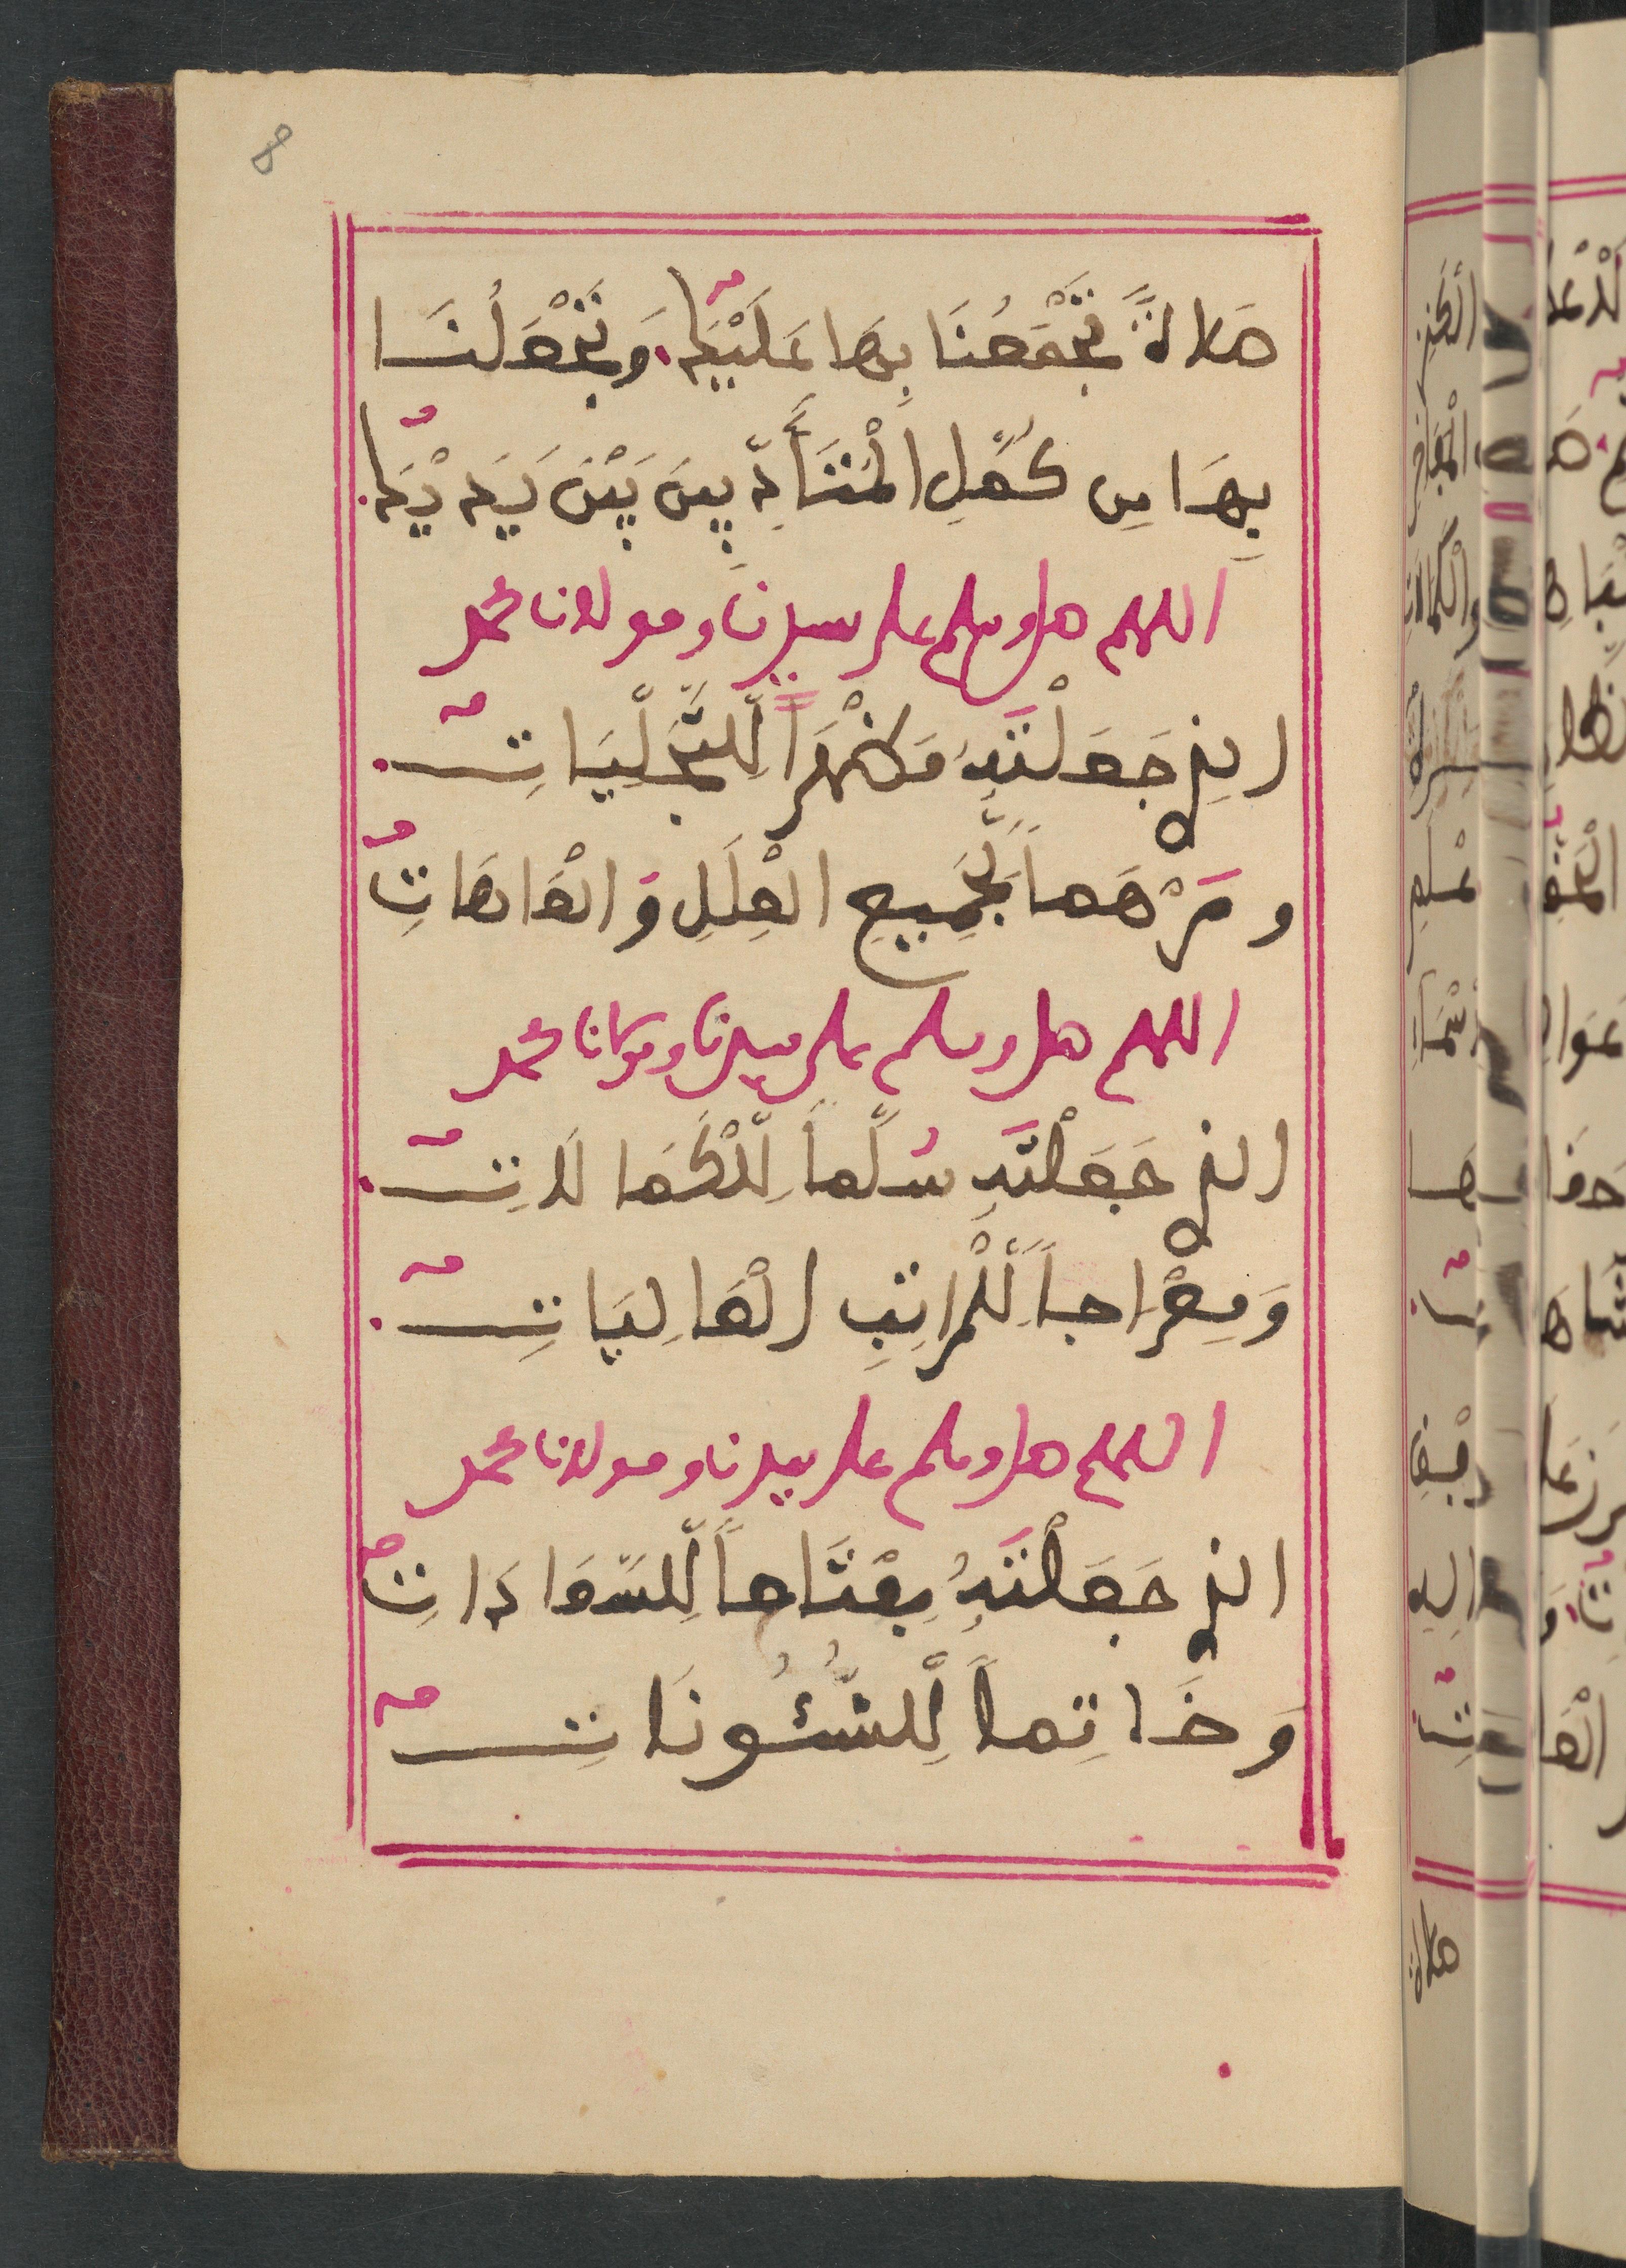 8
صلاةً تَجْمَعُنَا بِهَا عَلَيْكَ وَتَجْعَلُنَا
بِهَا مِن كُمَّلِ الْمُتَأَدِّبِينَ بَيْنَ يَدَيْكَ
اللهم صل وسلم على سيدنا ومولانا محمد
الذِي جَعَلْتَهُ مَظْهَراً لِّلتَّجَلِّيَاتِ
ومَرْهَماً لِّجَمِيعِ الْعِلَلِ وَالْعَاهَاتِ
اللهم صل وسلم على سيدنا ومولانا محمد
الذي جَعَلْتَهُ سُلَّماً لِّلْكَمَالَاتِ
وَمِعْرَاجاً لِّلْمَرَاتِبِ الْعَالِيَاتِ
اللهم صل وسلم على سيدنا ومولانا محمد
الذي جَعَلْتَهُ مِفْتَاحاً لِّلسَّعَادَاتِ
وَخَاتِماً لِّلشُّئُونَاتِ
صلاة